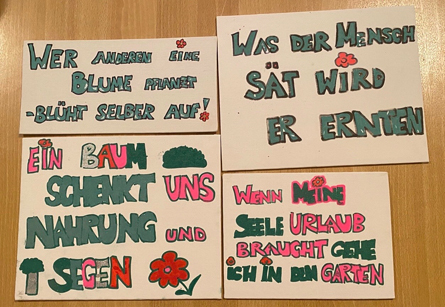 WER ANDEREN EINE
BLUME PFLANZT
-BLÜHT SELBER AUF!
WAS DER MENSCH
SÄT WIRD
ER ERNTEN
EIN BAUM
SCHENKT UNS
NAHRUNG UND
SEGEN
WENN MEINE
SEELE URLAUB
BRAUCHT GEHE
ICH IN DEN GARTEN